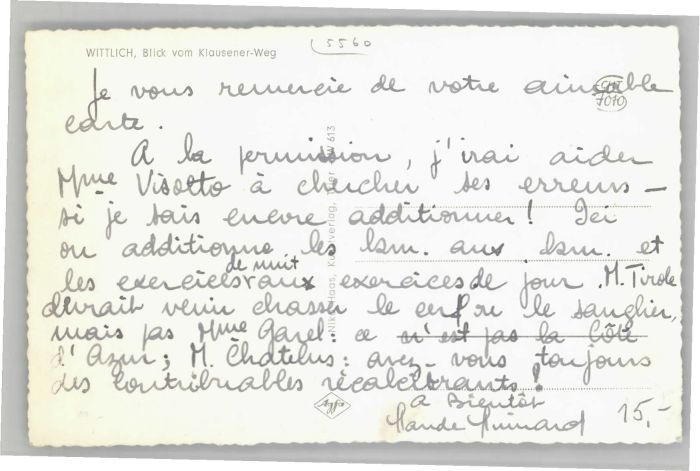 WITTLICH, Blick vom Klausener-Weg
5560
Je vous remercie de votre aimable
carte.
A la permission, j'irai aider
Mme Visotto à chercher ses erreurs —
si je sais encore additionner! Ici
on additionne les km. aux km. et
les exercices de nuit aux exercices de jour. M. Tirole
devrait venir chasser le cerf ou le sanglier,
mais pas Mme Garel: ce n'est pas la Côte
d'Azur; M. Chatelus: avez-vous toujours
des contribuables récalcitrants!
a Bientôt
Claude
15,-
7070
Agfa
613